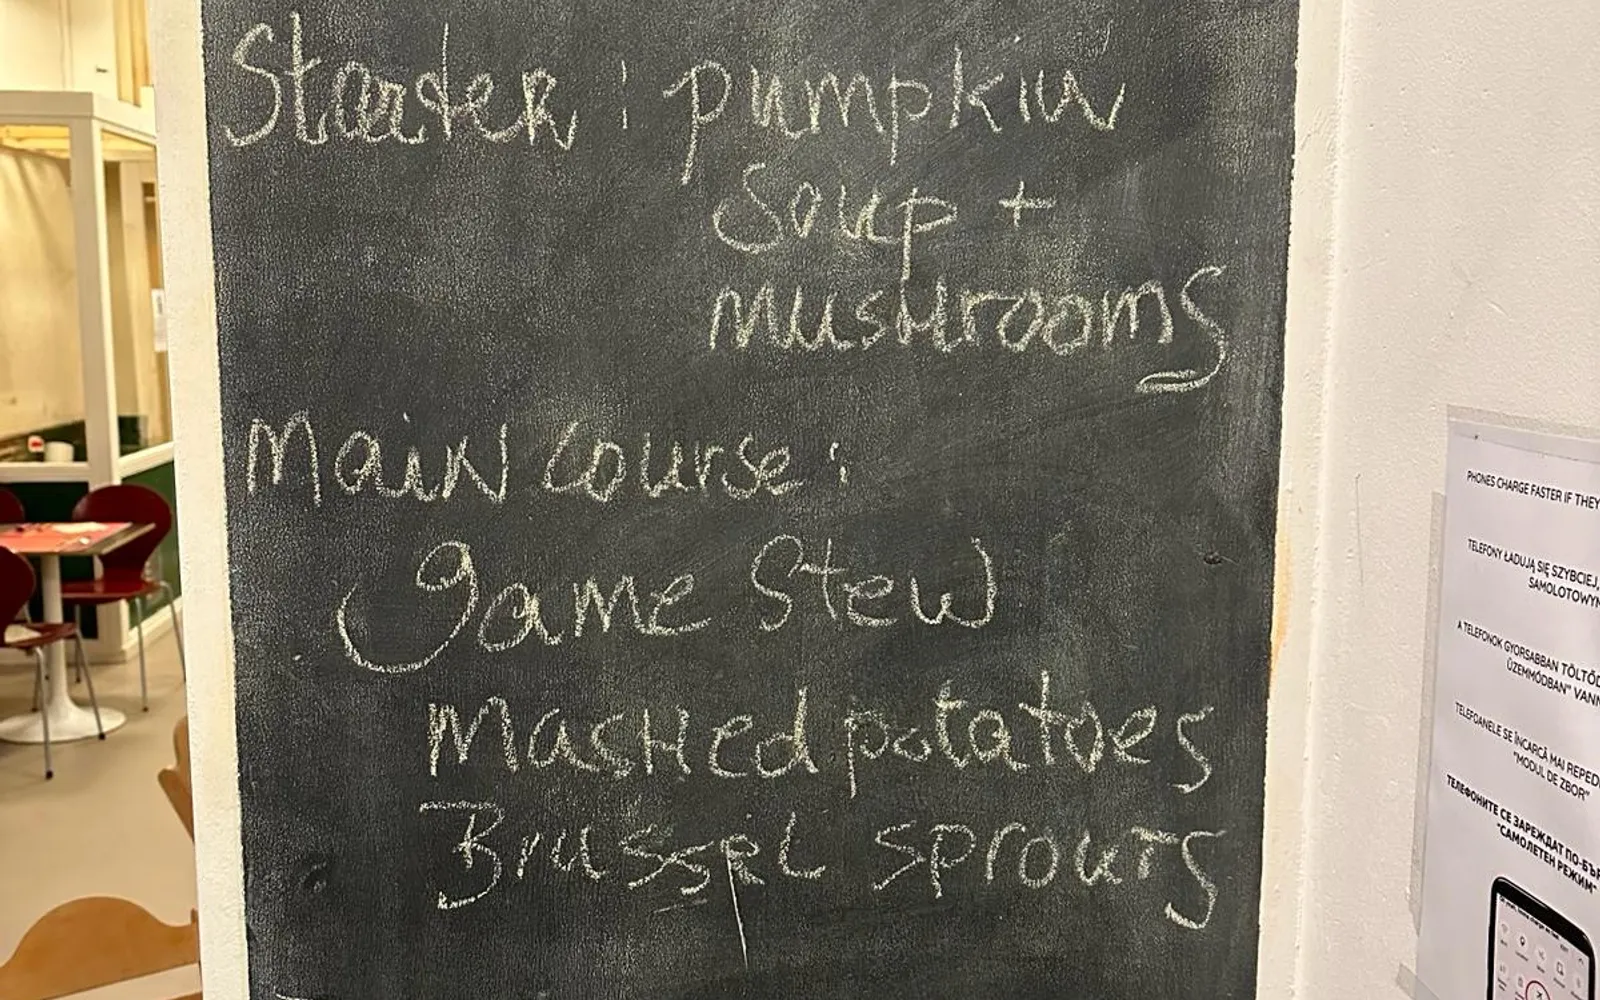 Starter : pumpkin
Soup +
MusHrooms
MaiN course :
Game Stew
MasHed potatoes
Brussel sprouts
PHONES CHARGE FASTER IF THEY
TELEFONY ŁADUJĄ SIĘ SZYBCIEJ,
SAMOLOTOWYM
A TELEFONOK GYORSABBAN TÖLTŐD
ÜZEMMÓDBAN" VANN
TELEFOANELE SE ÎNCARCĂ MAI REPED
"MODUL DE ZBOR"
ТЕЛЕФОНИТЕ СЕ ЗАРЕЖДАТ ПО-БЪР
"САМОЛЕТЕН РЕЖИМ"